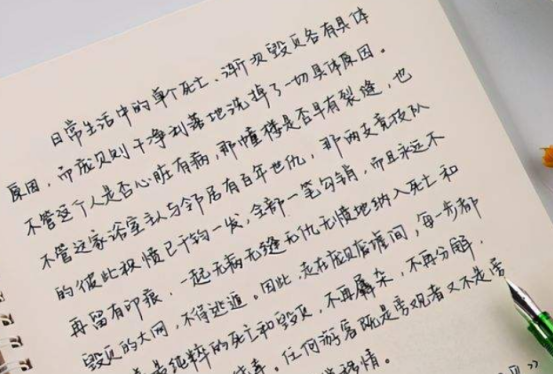 日常生活中的单个死亡、渐次毁灭各有具体
原因，而庞贝则干净利落地洗掉了一切具体原因。
不管这个人是否心脏有病，那幢楼是否早有裂缝，也
不管这家浴室主人与邻居有百年世仇，那两支竞技队
的彼此积愤已千钧一发，全部一笔勾销，而且永远不
再留有印痕，一起无病无缝无仇无愤地纳入死亡和
毁灭的大网，不得逃遁。因此，走在庞贝废墟间，每一步都
是最纯粹的死亡和毁灭，不再屠杂，不再分解，
任何游客既是旁观者又不是旁
移情。